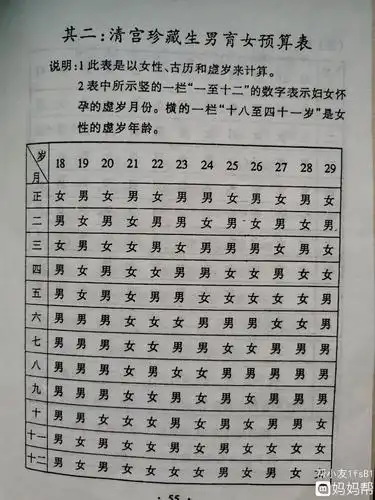 其二:清宫珍藏生男育女预算表
说明:1 此表是以女性、古历和虚岁来计算。
2 表中所示竖的一栏“一至十二”的数字表示妇女怀
孕的虚岁月份。横的一栏“十八至四十一岁”是女
性的虚岁年龄。
岁 18 19 20 21 22 23 24 25 26 27 28 29
月
正 女 男 女 男 女 男 男 女 男 女 男 女
二 男 女 男 女 男 男 女 男 女 男 女 男
三 女 男 女 女 男 女 男 男 男 女 男 女
四 男 女 男 女 女 男 男 女 女 男 女 女
五 男 女 男 女 男 男 女 女 女 女 女 男
六 男 男 男 女 女 女 男 男 男 女 女 男
七 男 男 男 女 女 男 男 女 女 男 男 男
八 男 男 男 女 男 女 女 男 男 男 男 男
九 男 男 男 女 女 男 女 男 女 男 女 女
十 男 男 女 女 女 男 女 男 女 男 女 女
十一 男 女 男 女 女 男 女 男 女 女 女 女
十二 男 女 男 女 女 女 女 男 女 男 男 女
· 55 ·
妈妈帮